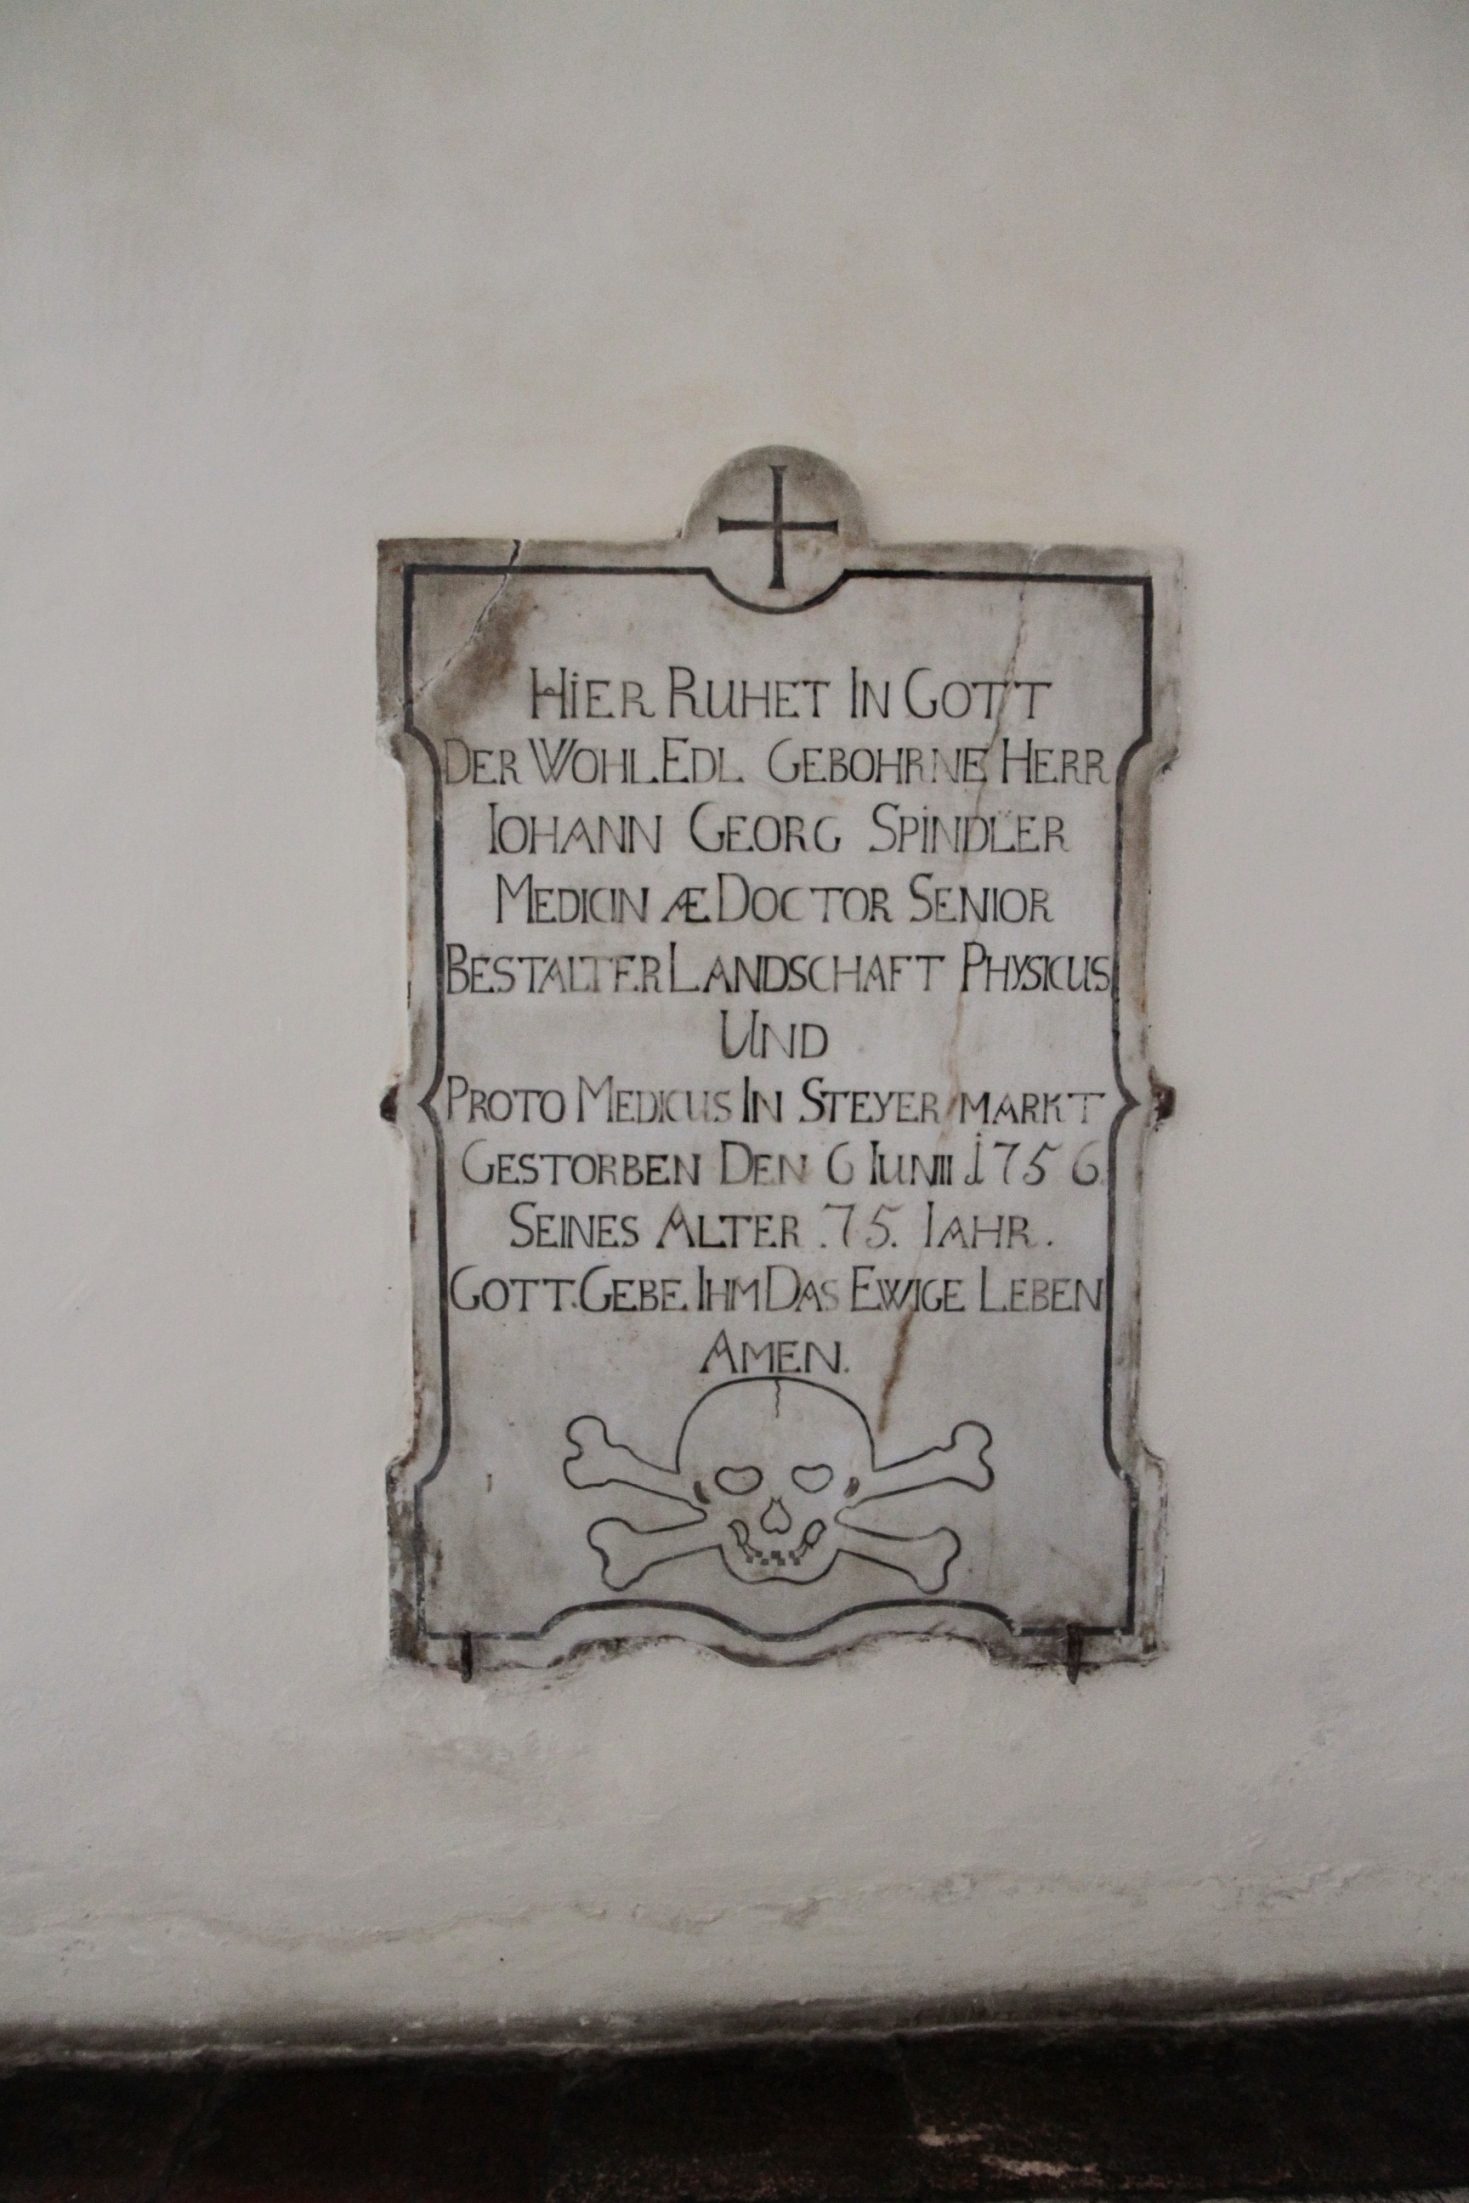 HiER RUHET IN GOTT
DER WOHL.EDL GEBOHRNE HERR
IOHANN GEORG SPiNDLER
MEDICINÆ DOCTOR SENIOR
BESTALTER LANDSCHAFT PHYSICUS
UND
PROTO MEDICUS IN STEYER MARKT
GESTORBEN DEN 6 IUNIII 1756.
SEINES ALTER .75. IAHR.
GOTT.GEBE.IHM DAS EWIGE LEBEN
AMEN.